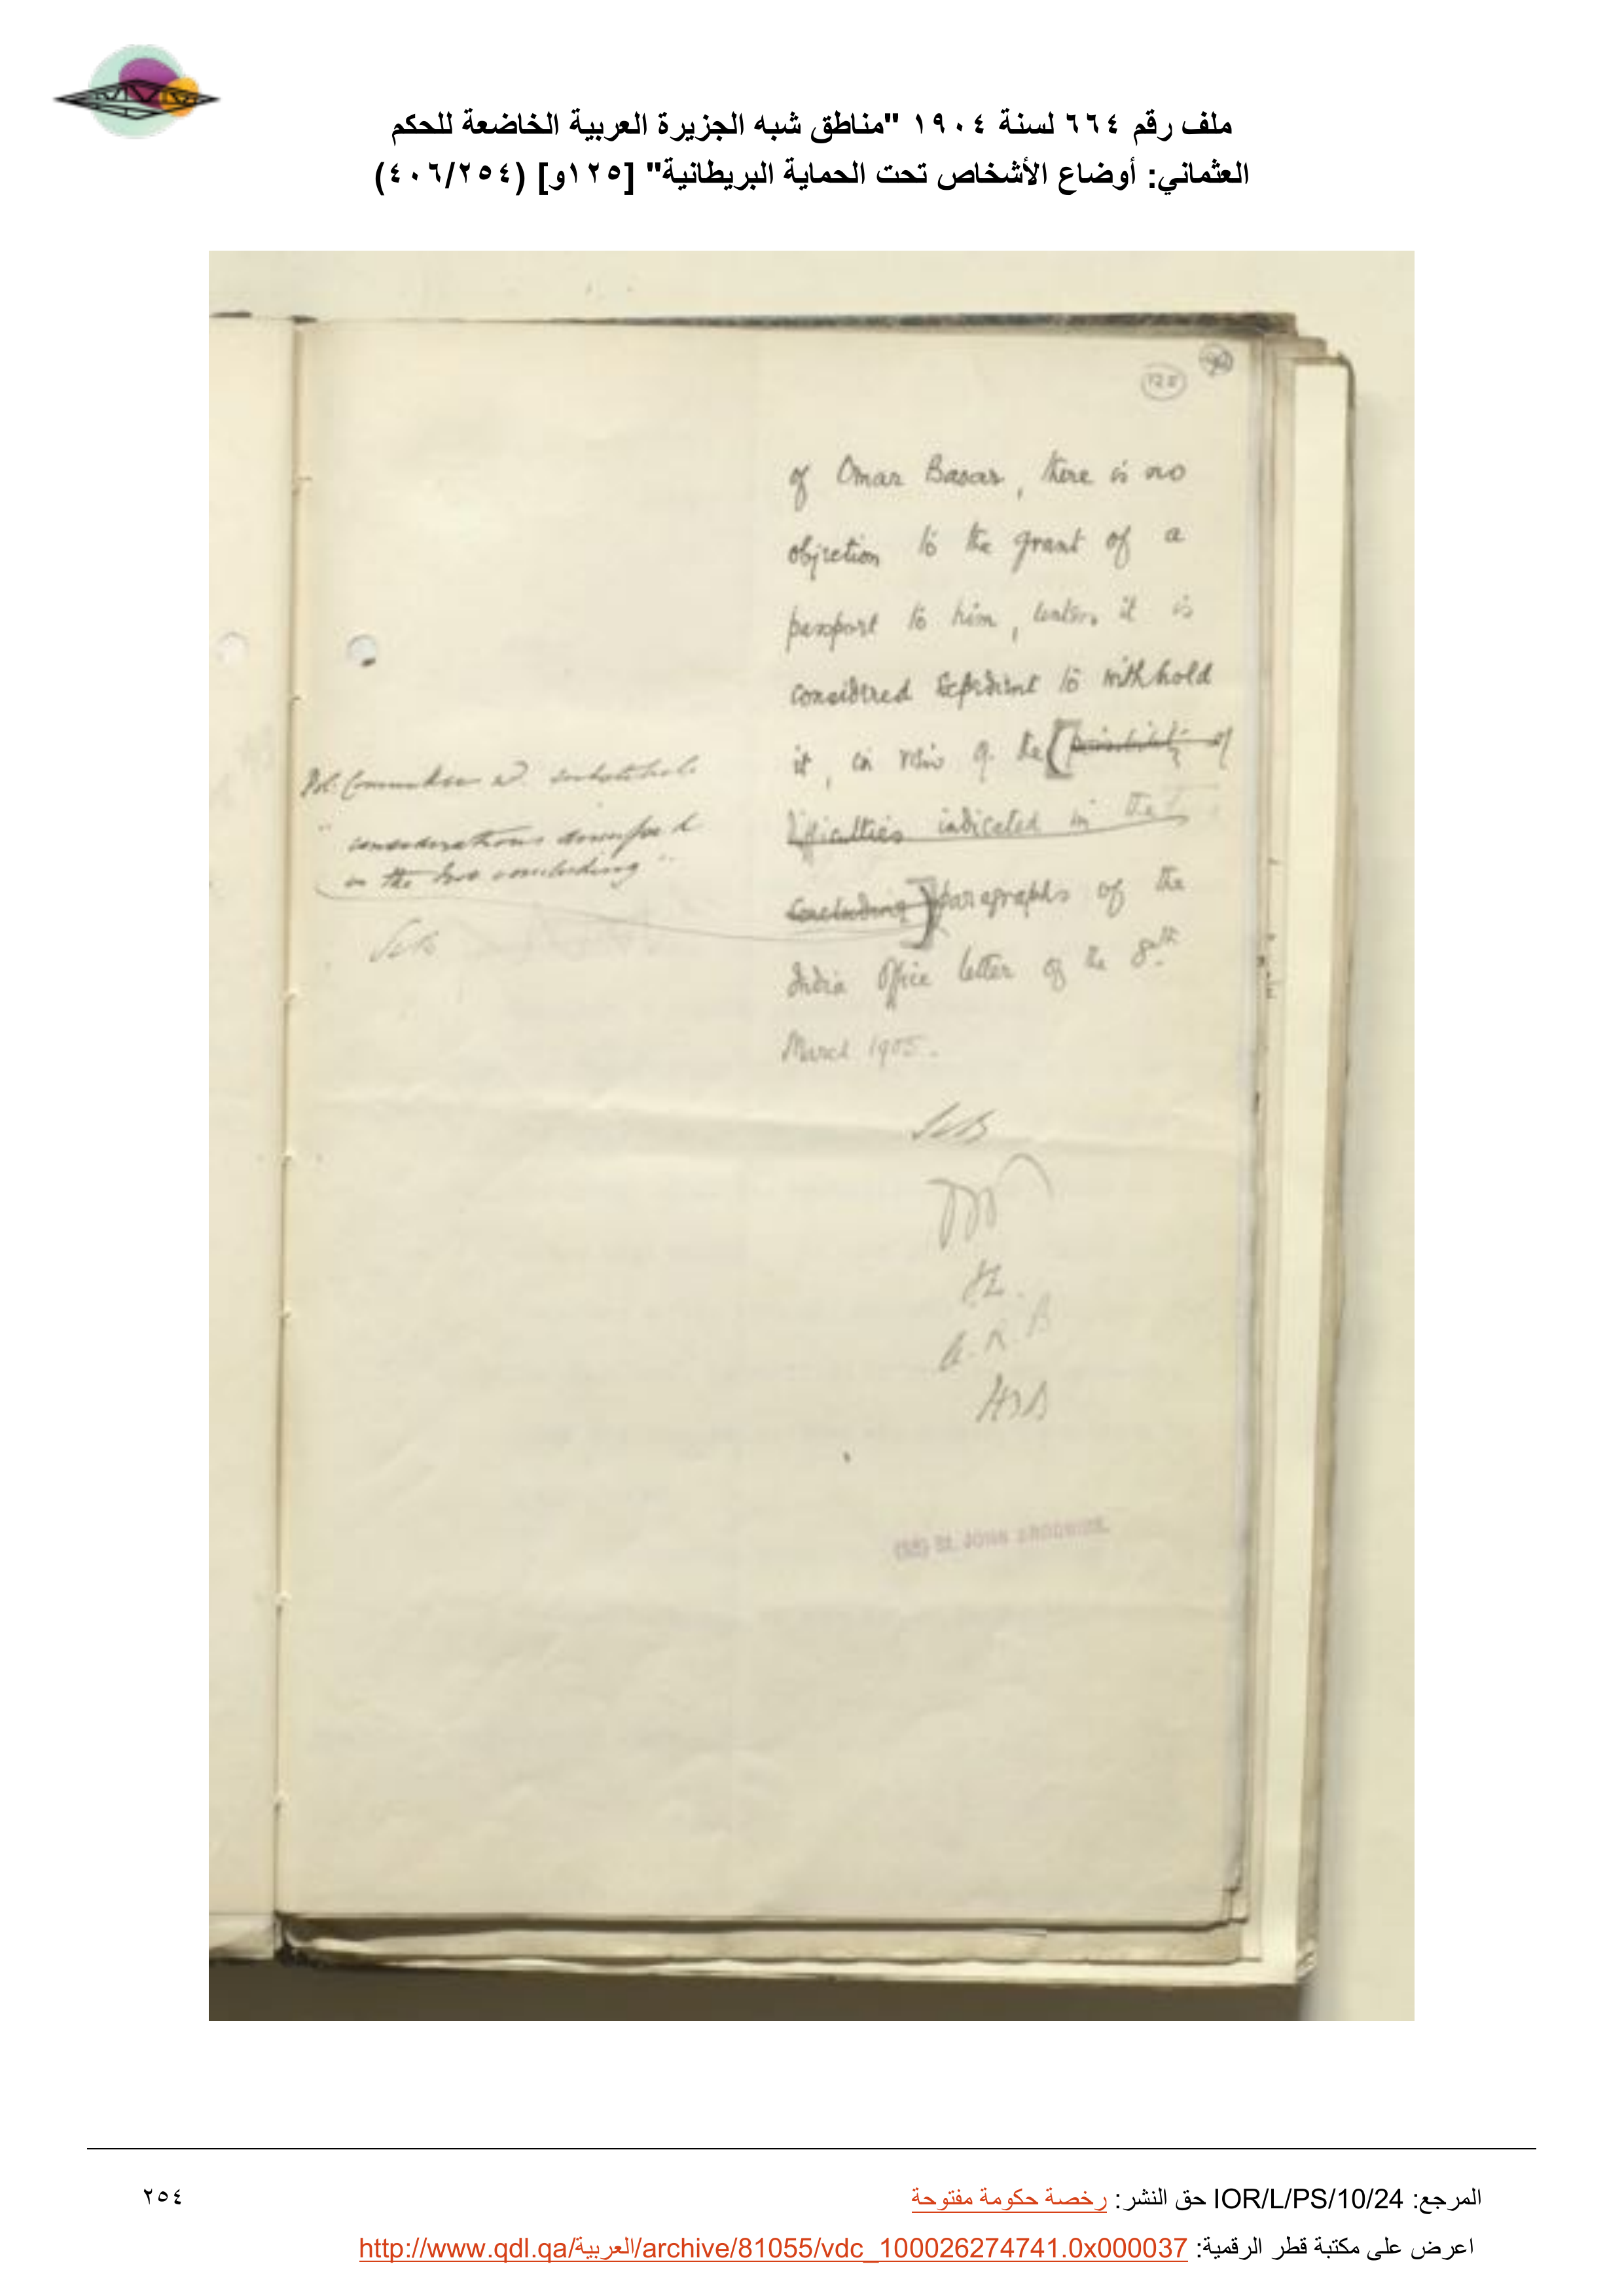 ملف رقم ٦٦٤ لسنة ١٩٠٤ "مناطق شبه الجزيرة العربية الخاضعة للحكم
العثماني: أوضاع الأشخاص تحت الحماية البريطانية" [١٢٥و] (٤٠٦/٢٥٤)
125
of Omar Basar, there is no
objection to the grant of a
passport to him, unless it is
considered expedient to withhold
it, in view of the [possibility of
difficulties indicated in the
concluding] paragraphs of the
India Office letter of the 8th
March 1905.
Pol. Committee substitute
"considerations
in the two concluding"
A.R.B
(Sd) St. JOHN BRODRICK.
المرجع: IOR/L/PS/10/24 حق النشر: رخصة حكومة مفتوحة
٢٥٤
اعرض على مكتبة قطر الرقمية: http://www.qdl.qa/العربية/archive/81055/vdc_100026274741.0x000037